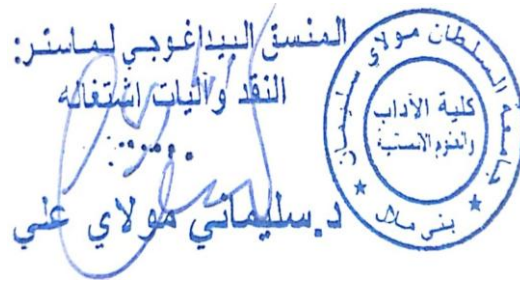 المنسق البيداغوجي لماستر:
النقد وآليات اشتغاله
د.سليماني مولاي علي
جامعة السلطان مولاي سليمان
كلية الآداب
والعلوم الانسانية
بني ملال